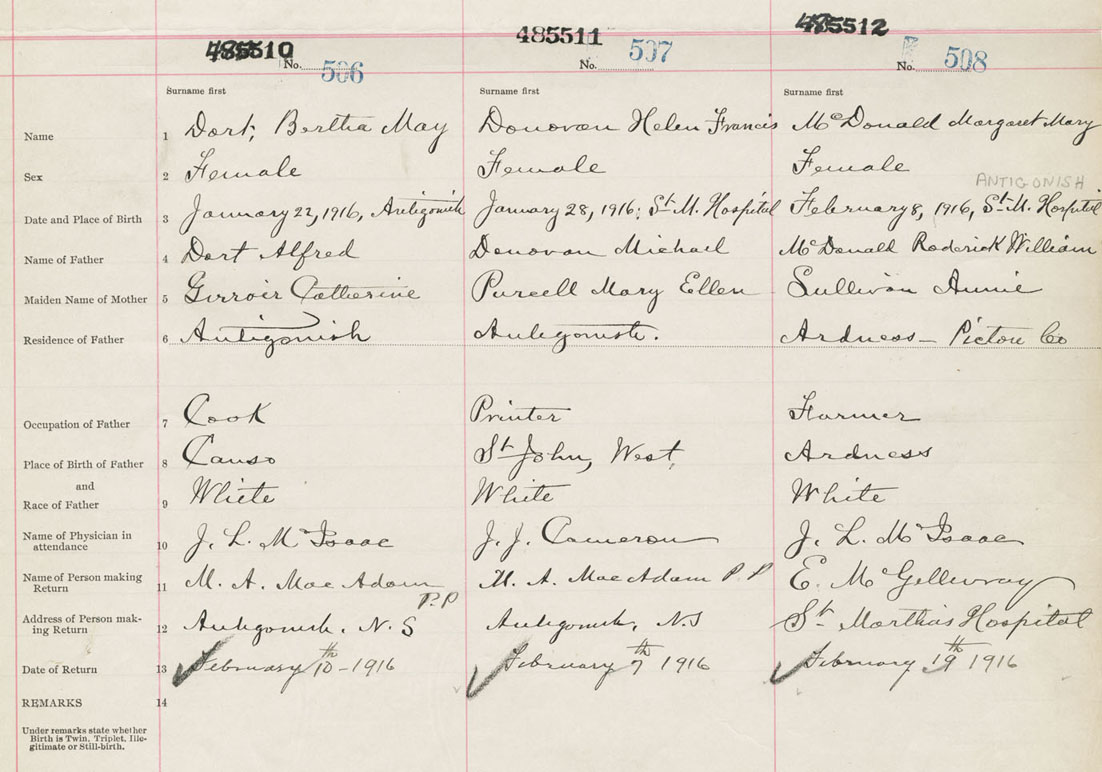 485510 485511 485512
No. 506 No. 507 No. 508
Surname first Surname first Surname first
Name 1 Dort, Bertha May Donovan Helen Francis McDonald Margaret Mary
Sex 2 Female Female Female
ANTIGONISH
Date and Place of Birth 3 January 22, 1916, Antigonish January 28, 1916; St. M. Hospital February 8, 1916, St. M. Hospital
Name of Father 4 Dort Alfred Donovan Michael McDonald Roderick William
Maiden Name of Mother 5 Girroir Catherine Purcell Mary Ellen Sullivan Annie
Residence of Father 6 Antigonish Antigonish. Ardness – Pictou Co
Occupation of Father 7 Cook Printer Farmer
Place of Birth of Father 8 Canso St John, West, Ardness
and
Race of Father 9 White White White
Name of Physician in
attendance 10 J. L. McIsaac J. J. Cameron J. L. McIsaac
Name of Person making
Return 11 M. A. MacAdam M. A. MacAdam P.P E. McGillivray
P.P
Address of Person mak-
ing Return 12 Antigonish, N.S Antigonish, N.S St Marthas Hospital
Date of Return 13 February 10th – 1916 February 7th 1916 February 19th 1916
REMARKS 14
Under remarks state whether
Birth is Twin, Triplet, Ille-
gitimate or Still-birth.